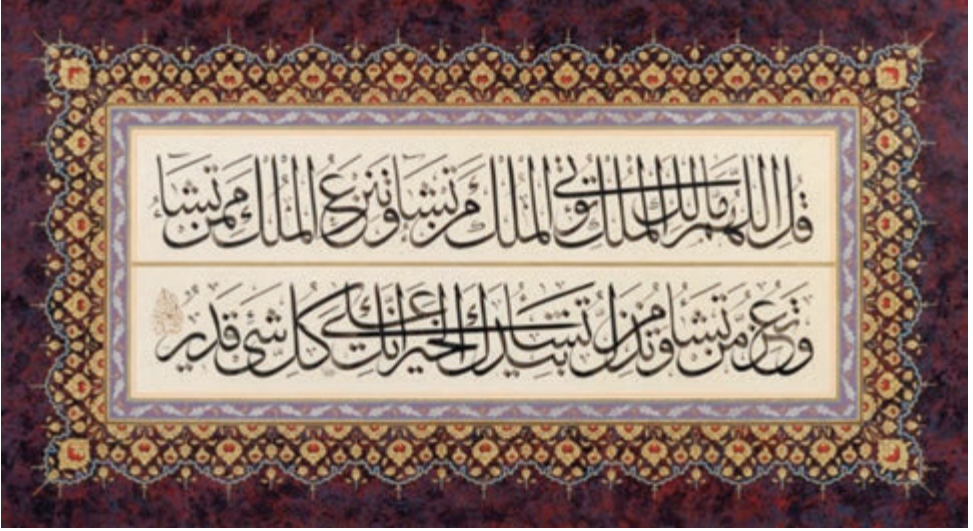 قُلِ اللَّهُمَّ مَالِكَ الْمُلْكِ تُؤْتِي الْمُلْكَ مَنْ تَشَاءُ وَتَنْزِعُ الْمُلْكَ مِمَّنْ تَشَاءُ
وَتُعِزُّ مَنْ تَشَاءُ وَتُذِلُّ مَنْ تَشَاءُ بِيَدِكَ الْخَيْرُ إِنَّكَ عَلَى كُلِّ شَيْءٍ قَدِيرٌ